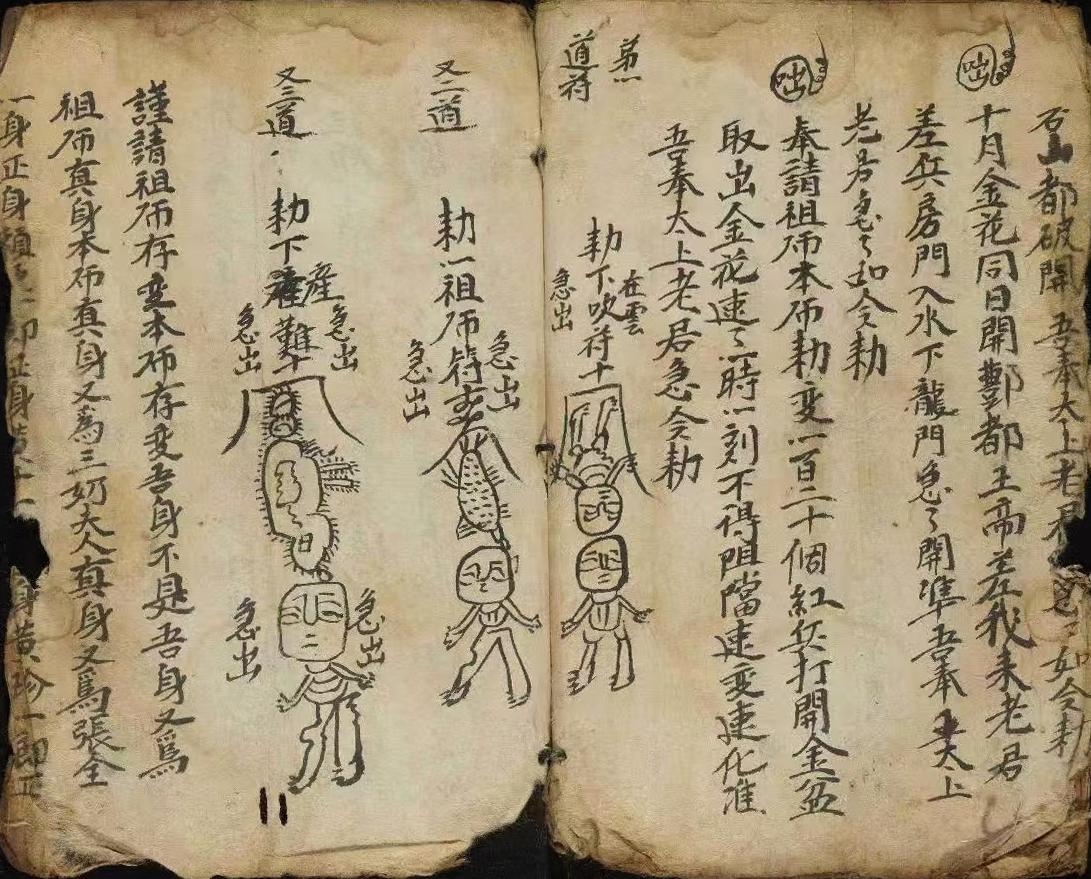 石山都破開 吾奉太上老君急〻如令勅
咄
十月金花同日開酆都王斋差我来老君
差兵房門入水下龍門急〻開準吾奉太上
老君急〻如令勅
咄
奉請祖师本师勅变一百二十個紅兵打開金盆
取出金花速〻一時一刻不得阻擋速变速化准
吾奉太上老君急令勅
第一
道符
勅下吹符十
在雲
急出
又二道
勅一祖师符
急出
急出
又三道
勅下產難
產
急出
急出
急出
急出
謹請祖师存变本师存变吾身不是吾身又爲
祖师真身本师真身又為三奶夫人真身又爲張全
一身正身
身黄珍一郎正